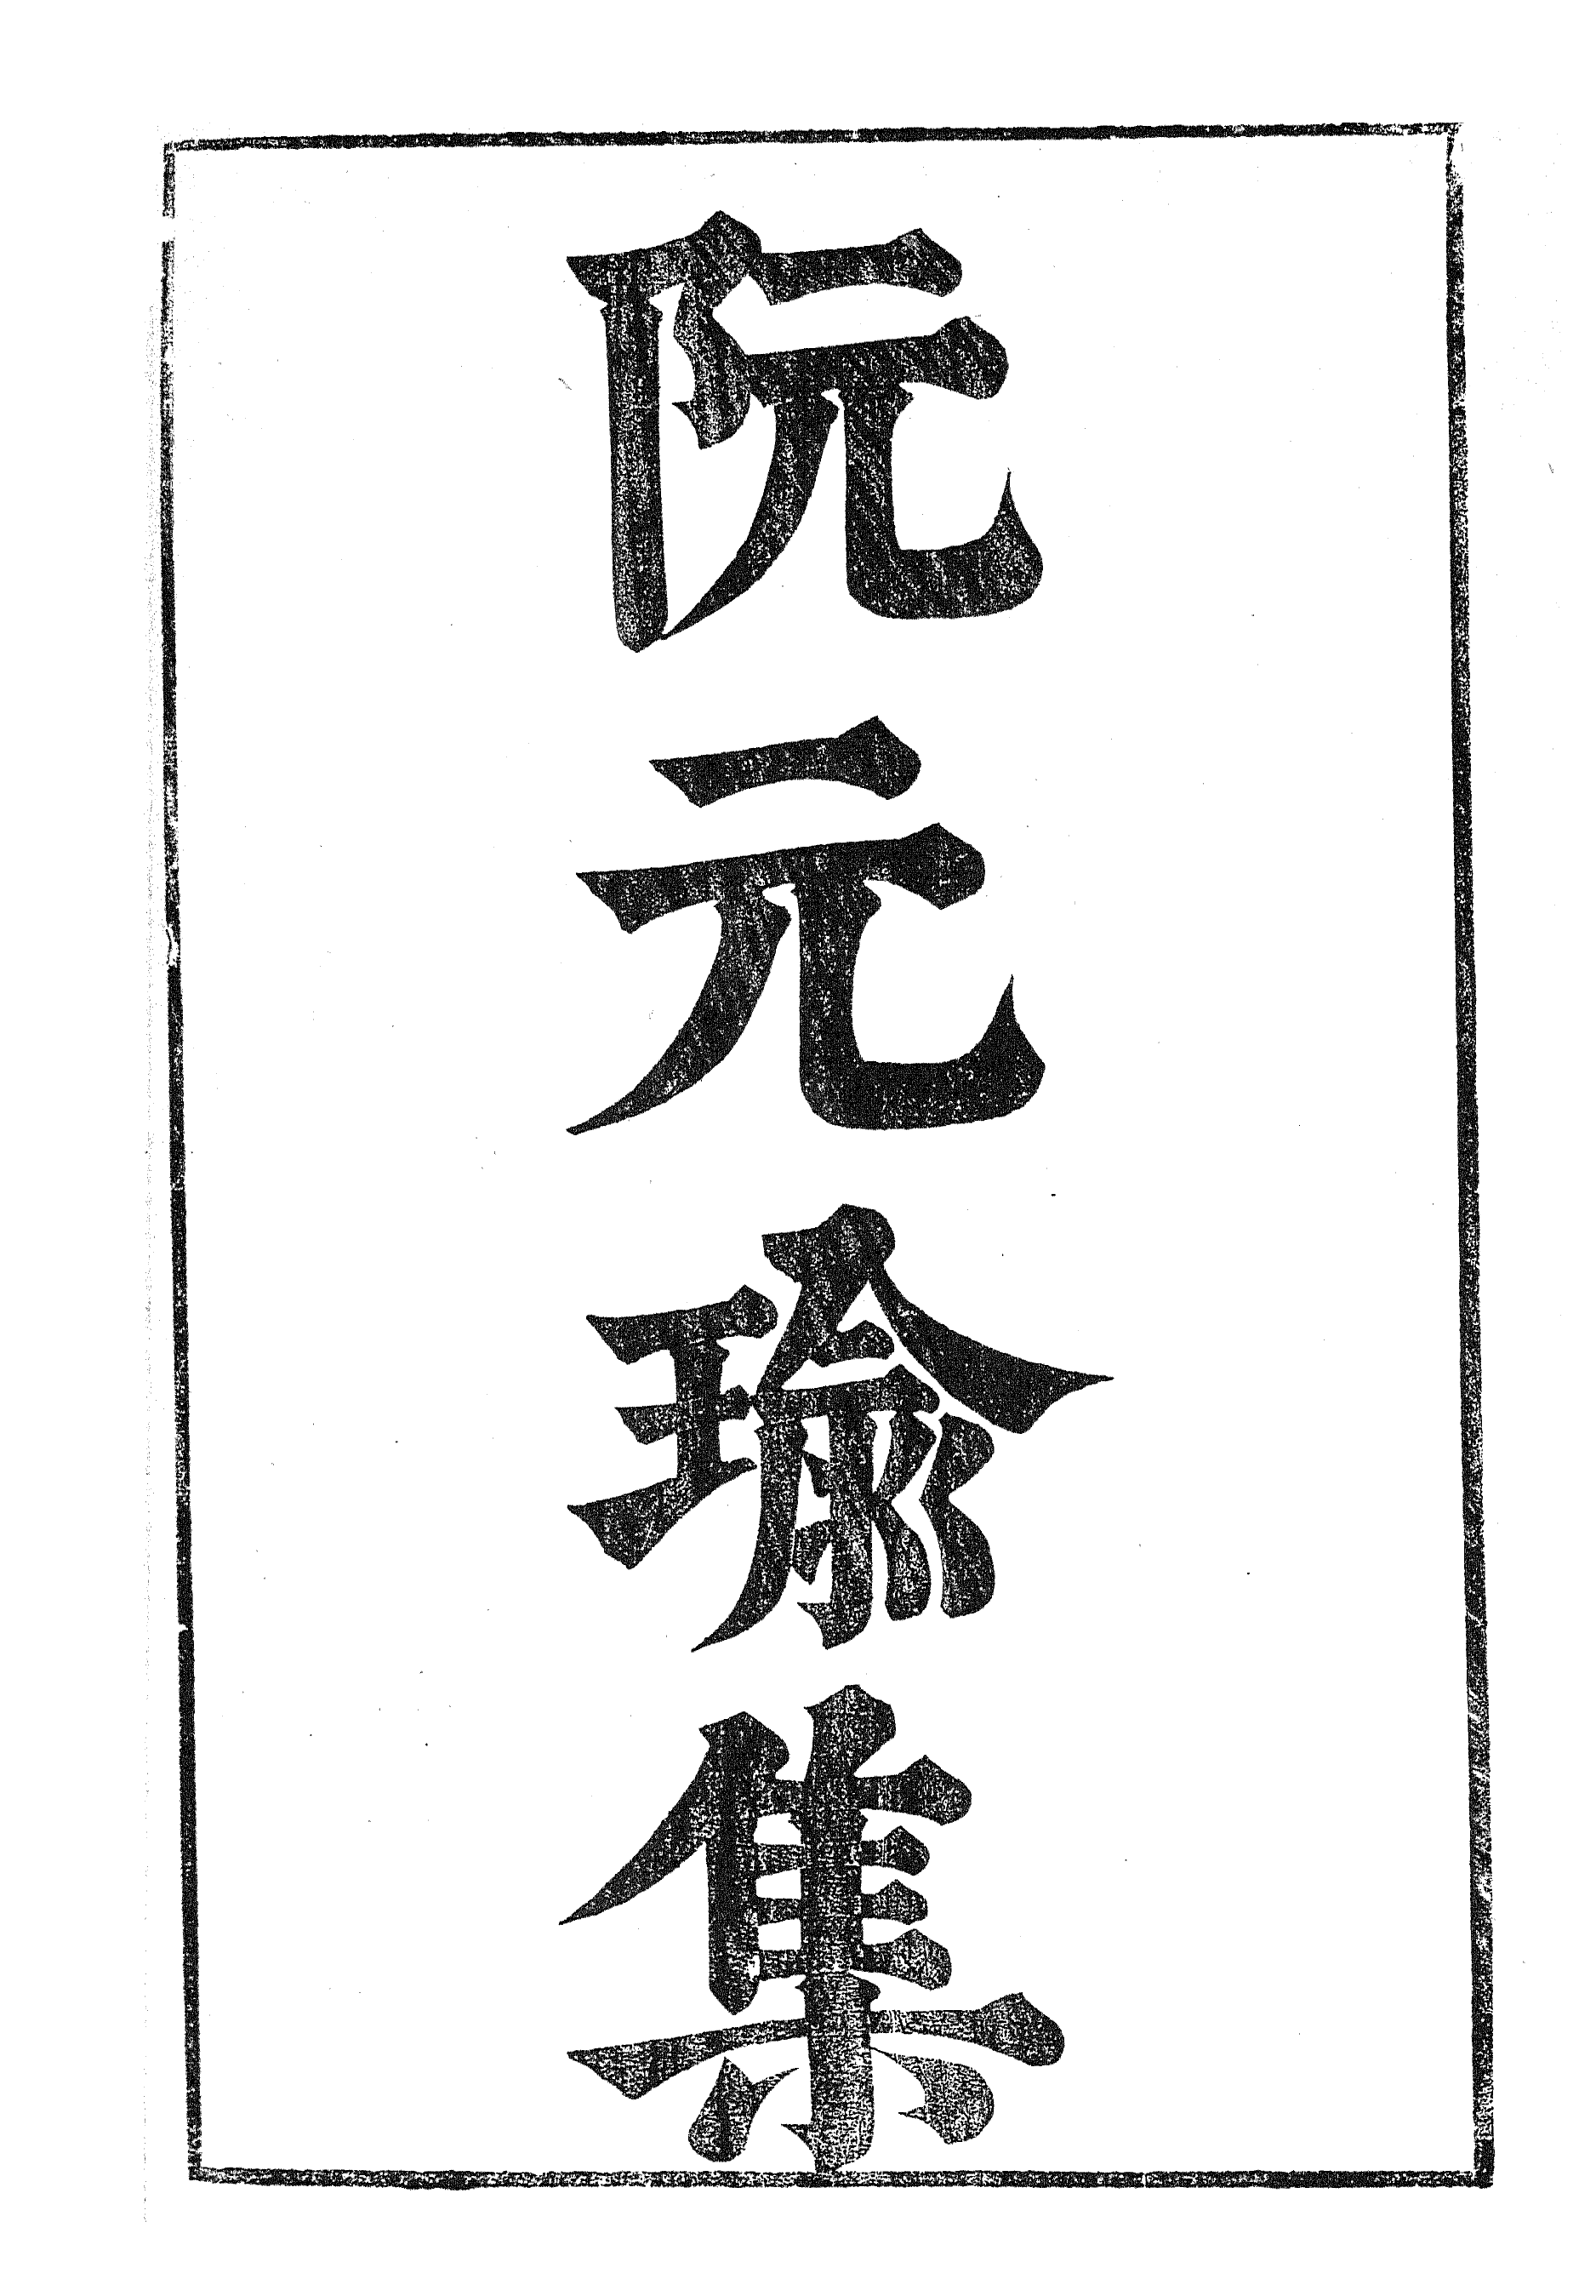 阮元瑜集